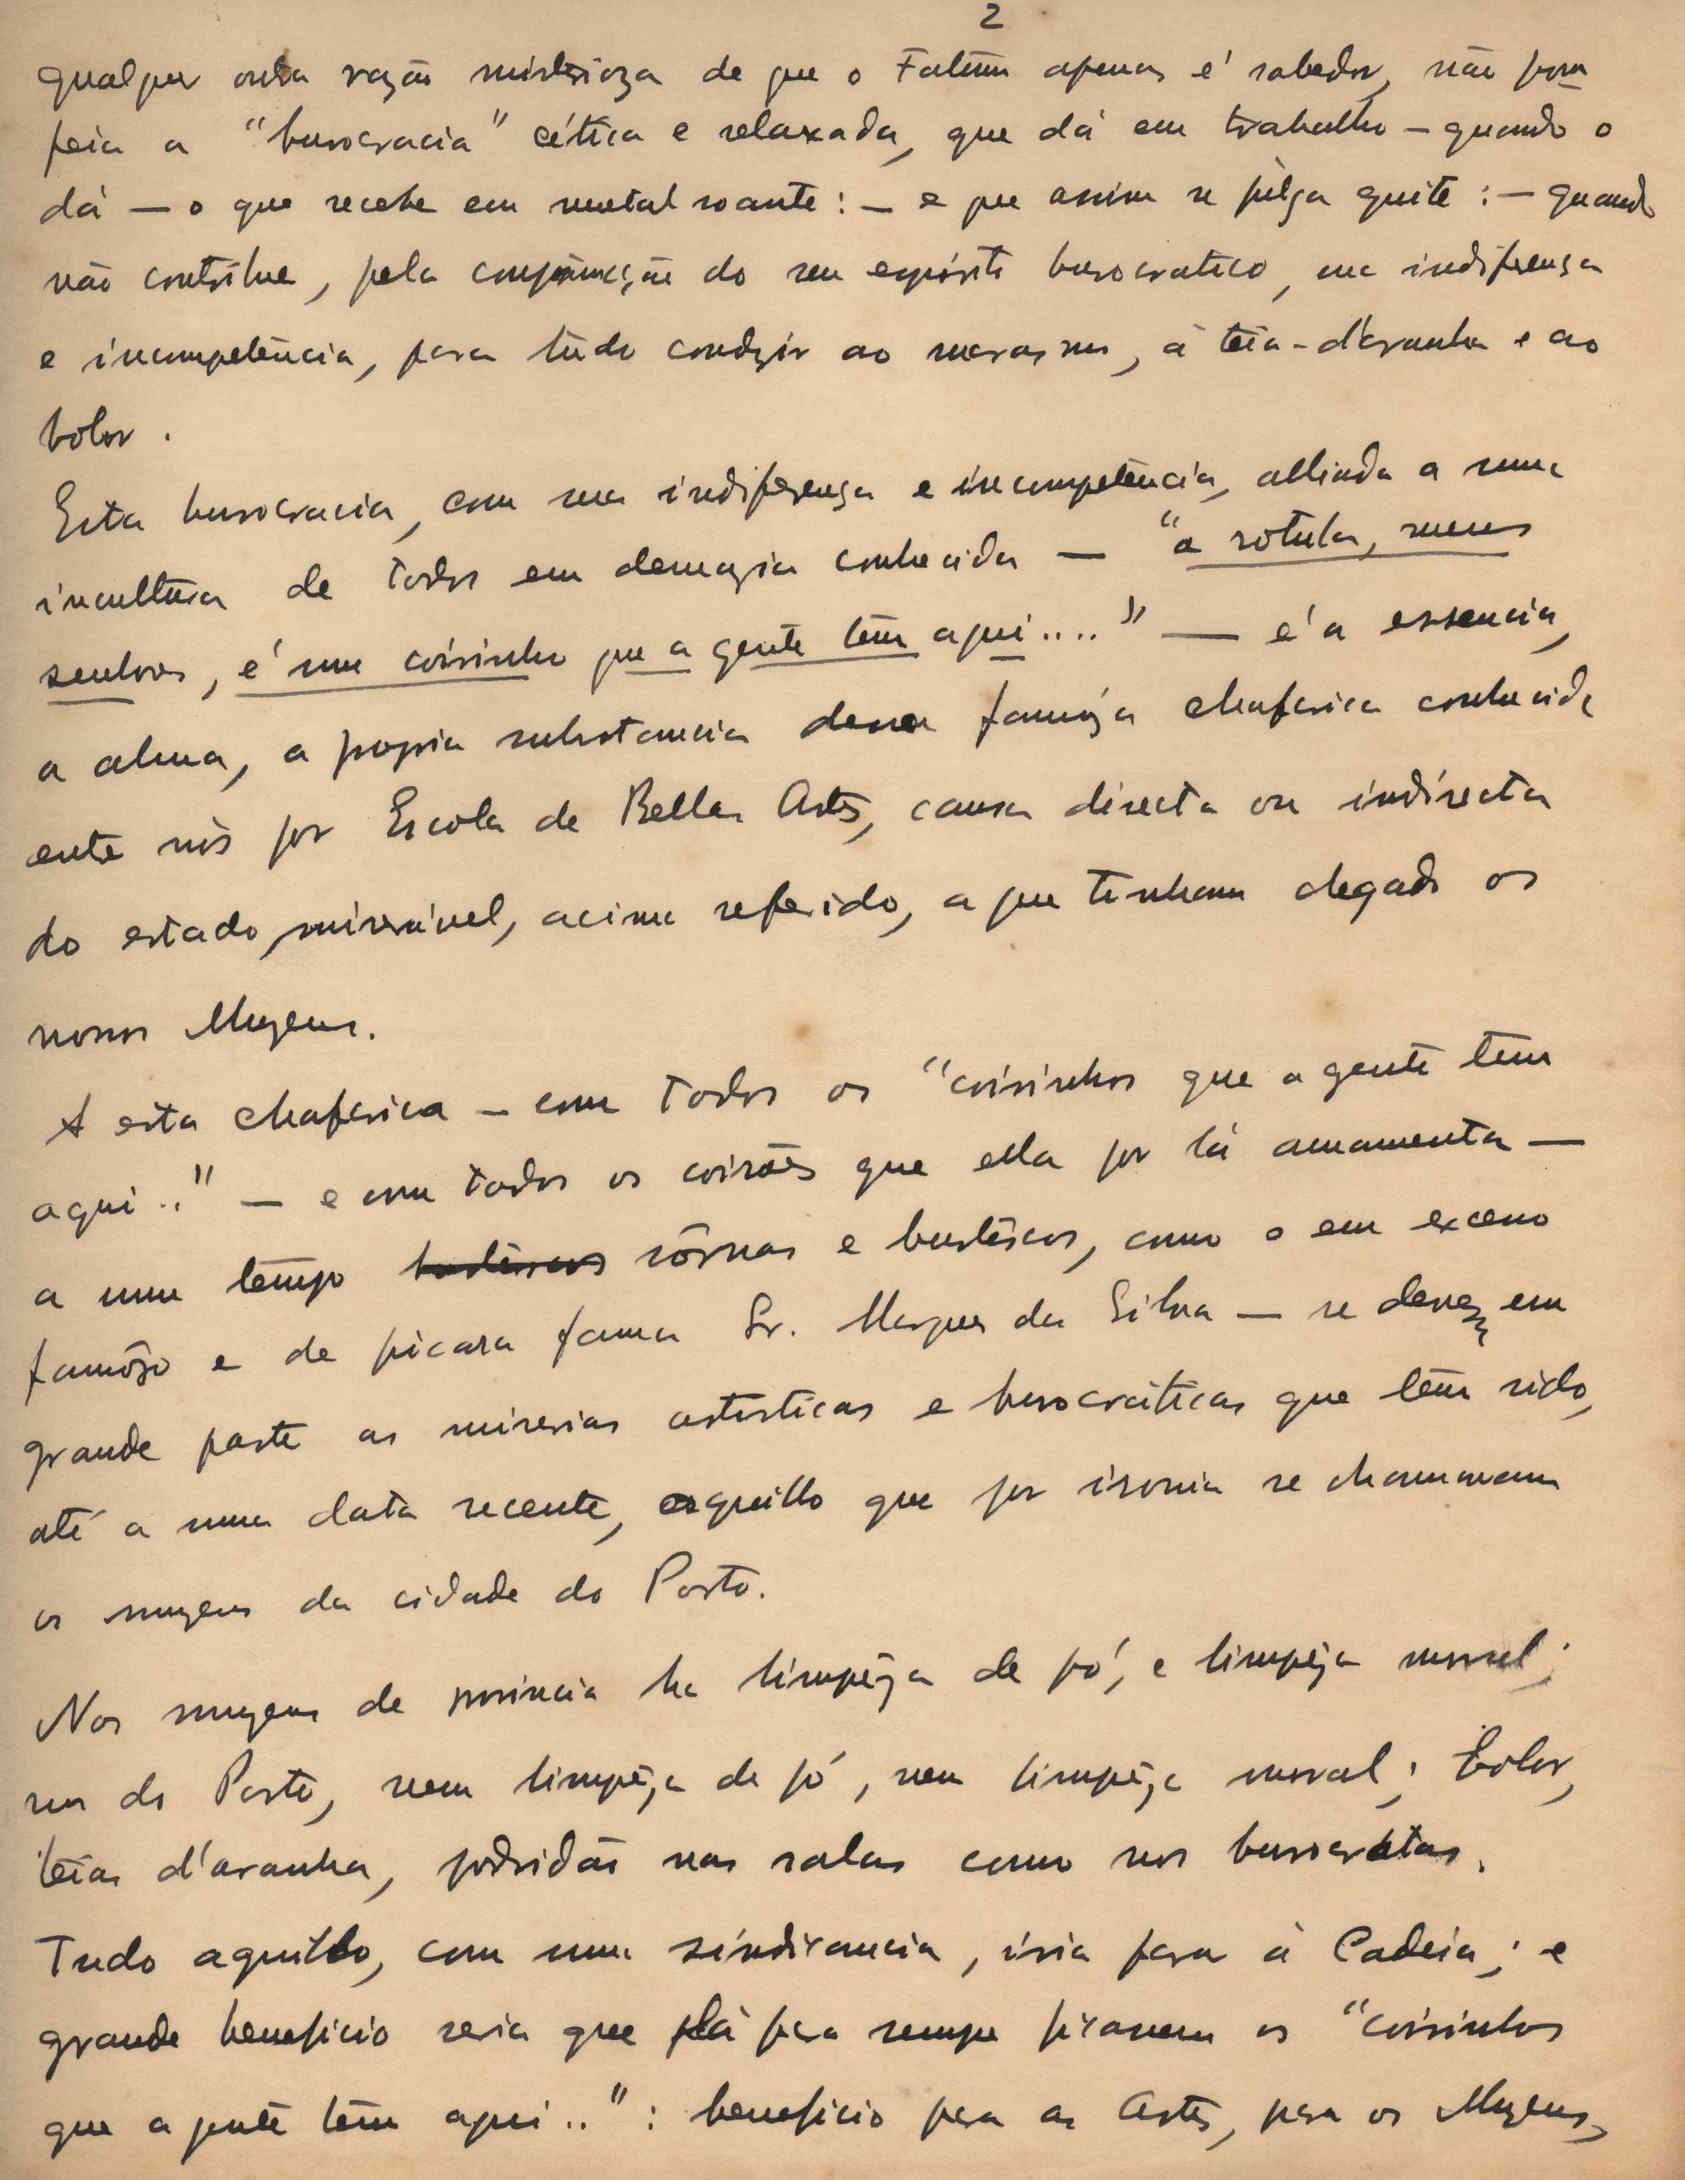 2
qualquer outra razão misterioza de que o Fatum apenas é sabedor, não
a "burocracia" cética e relaxada, que dá em trabalho – quando o
dá – o que recebe em metal soante : – e que assim se julga quite : – quando
não contribue, pela do seu espirito burocratico, sua indiferença
e incompetência, para tudo conduzir ao marasmo, á teia-d'aranha e ao
bolor.
Esta burocracia, com sua indiferença e incompetência, alliada a uma
incultura de todos em demazia conhecida – "a rotula, meus
senhores, é um coisinho que a gente têm aqui...." – é a essencia,
a alma, a propria substancia dessa famoza chafarica conhecida
entre nós por Escola de Bellas Artes, causa directa ou indirecta
do estado miseravel, acima referido, a que tinham chegado os
nossos Muzeus.
A esta chafarica – com todos os "coisinhos que a gente têm
aqui.." – e com todos os coisões que ella por lá amamenta –
a um tempo sôrnas e burlêscos, como o em excesso
famôzo e de picara fama Sr. Marques da Silva – se devem em
grande parte as miserias artisticas e burocráticas que têm sido,
até a uma data recente, aquillo que por ironia se chamavam
os muzeus da cidade do Porto.
Nos muzeus de provincia ha limpêza de pó, e limpêza moral;
nos do Porto, nem limpêza de pó, nem limpêza moral; bolor,
teias d'aranha, podridão nas salas como nos burocratas.
Tudo aquillo, com uma sindicancia, iria para á Cadeia; e
grande beneficio seria que lá para sempre ficassem os "coisinhos
que a gente têm aqui..": beneficio para as Artes, para os Muzeus,